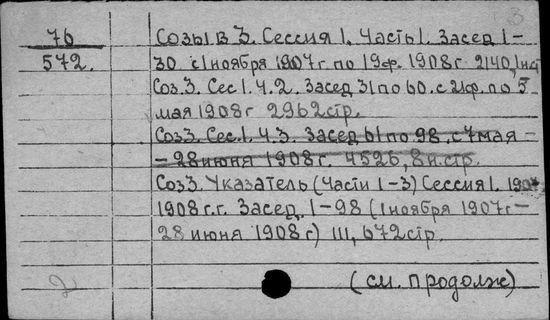 76
572.
Созыв 3. Сессия 1. Часть 1. Засед 1-
30 с 1 ноября 1907г. по 19 ф. 1908г. 2140,
Соз. 3. Сес 1. Ч. 2. Засед 31 по 60. с 21ф. по 5
мая 1908г 2962стр.
Соз 3. Сес. 1. Ч. 3. Засед 61 по 98. с 7 мая-
- 28 июня 1908г. 4526, 8 н.стр.
Соз 3. Указатель (Части 1-3) Сессия 1. 1907
1908 г.г. Засед. 1-98 (1 ноября 1907г-
28 июня 1908г) III, 672стр.
2
(см. продолж)